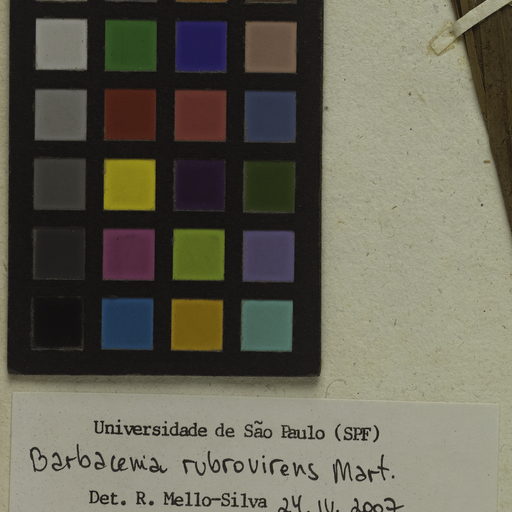 Universidade de São Paulo (SPF)
Barbacenia rubrovirens Mart.
Det. R. Mello-Silva 24.IV.2007